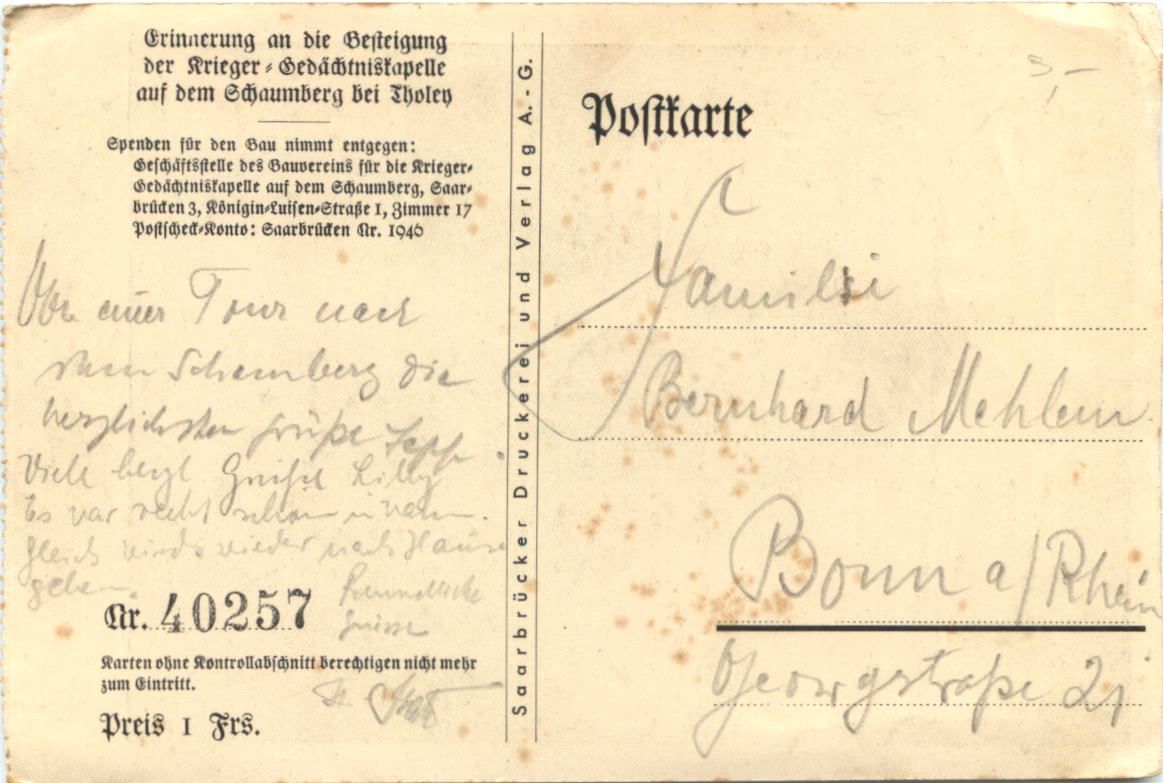 Erinnerung an die Besteigung
der Krieger-Gedächtniskapelle
auf dem Schaumberg bei Tholey
Spenden für den Bau nimmt entgegen:
Geschäftsstelle des Bauvereins für die Krieger-
Gedächtniskapelle auf dem Schaumberg, Saar-
brücken 3, Königin-Luisen-Straße 1, Zimmer 17
Postscheck-Konto: Saarbrücken Nr. 1946
Von einer Tour nach
dem Schaumberg die
herzlichsten Grüße Sepp.
Viele herzl Grüße Lilly
Es war recht schön u warm.
Gleich wirds wieder nach Hause
gehen.
Grüsse
Nr. 40257
Karten ohne Kontrollabschnitt berechtigen nicht mehr
zum Eintritt.
Preis 1 Frs.
Saarbrücker Druckerei und Verlag A.-G.
Postkarte
3,-
Familie
Bernhard Mehlem
Bonn a/Rhein
Georgstraße 21